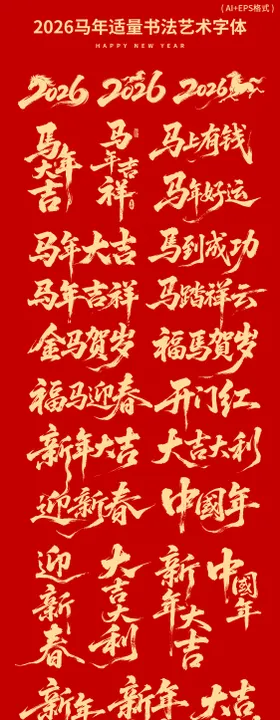 ( AI+EPS格式 )
2026马年适量书法艺术字体
HAPPY NEW YEAR
2026 2026 2026
马年大吉
马年吉祥
马上有钱
马年好运
马年大吉 馬到成功
马年吉祥 马踏祥云
金马贺岁 福馬贺岁
福马迎春 开门红
新年大吉 大吉大利
迎新春 中國年
迎新春
大吉大利
新年大吉
中國年
新年 新年 大吉